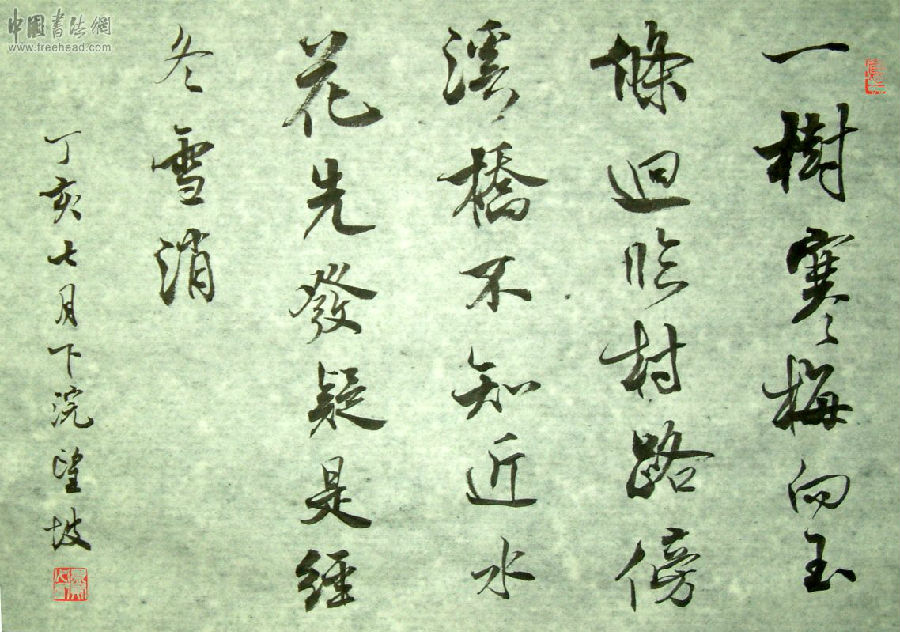 中國書法網
www.freehead.com
一樹寒梅向玉
條迴臨村路傍
溪橋不知近水
花先發疑是經
冬雪消
丁亥七月下浣望坡